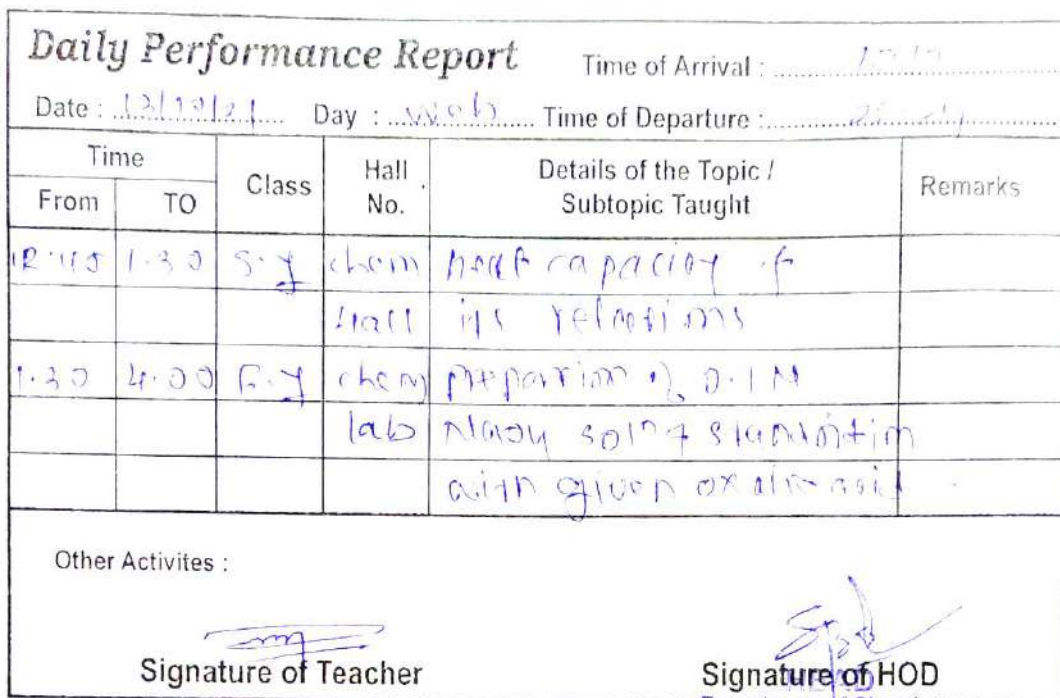 Daily Performance Report
Time of Arrival :
Date : 13/10/21 Day : Web Time of Departure :
Time Class Hall No. Details of the Topic / Subtopic Taught Remarks
From TO
12.45 1.30 S.y chem heat capacity &
Hall its relations
1.30 4.00 F.y chem 0.1 N
lab NaOH sol^n &
with given oxalic acid
Other Activites :
Signature of Teacher Signature of HOD
HEAD